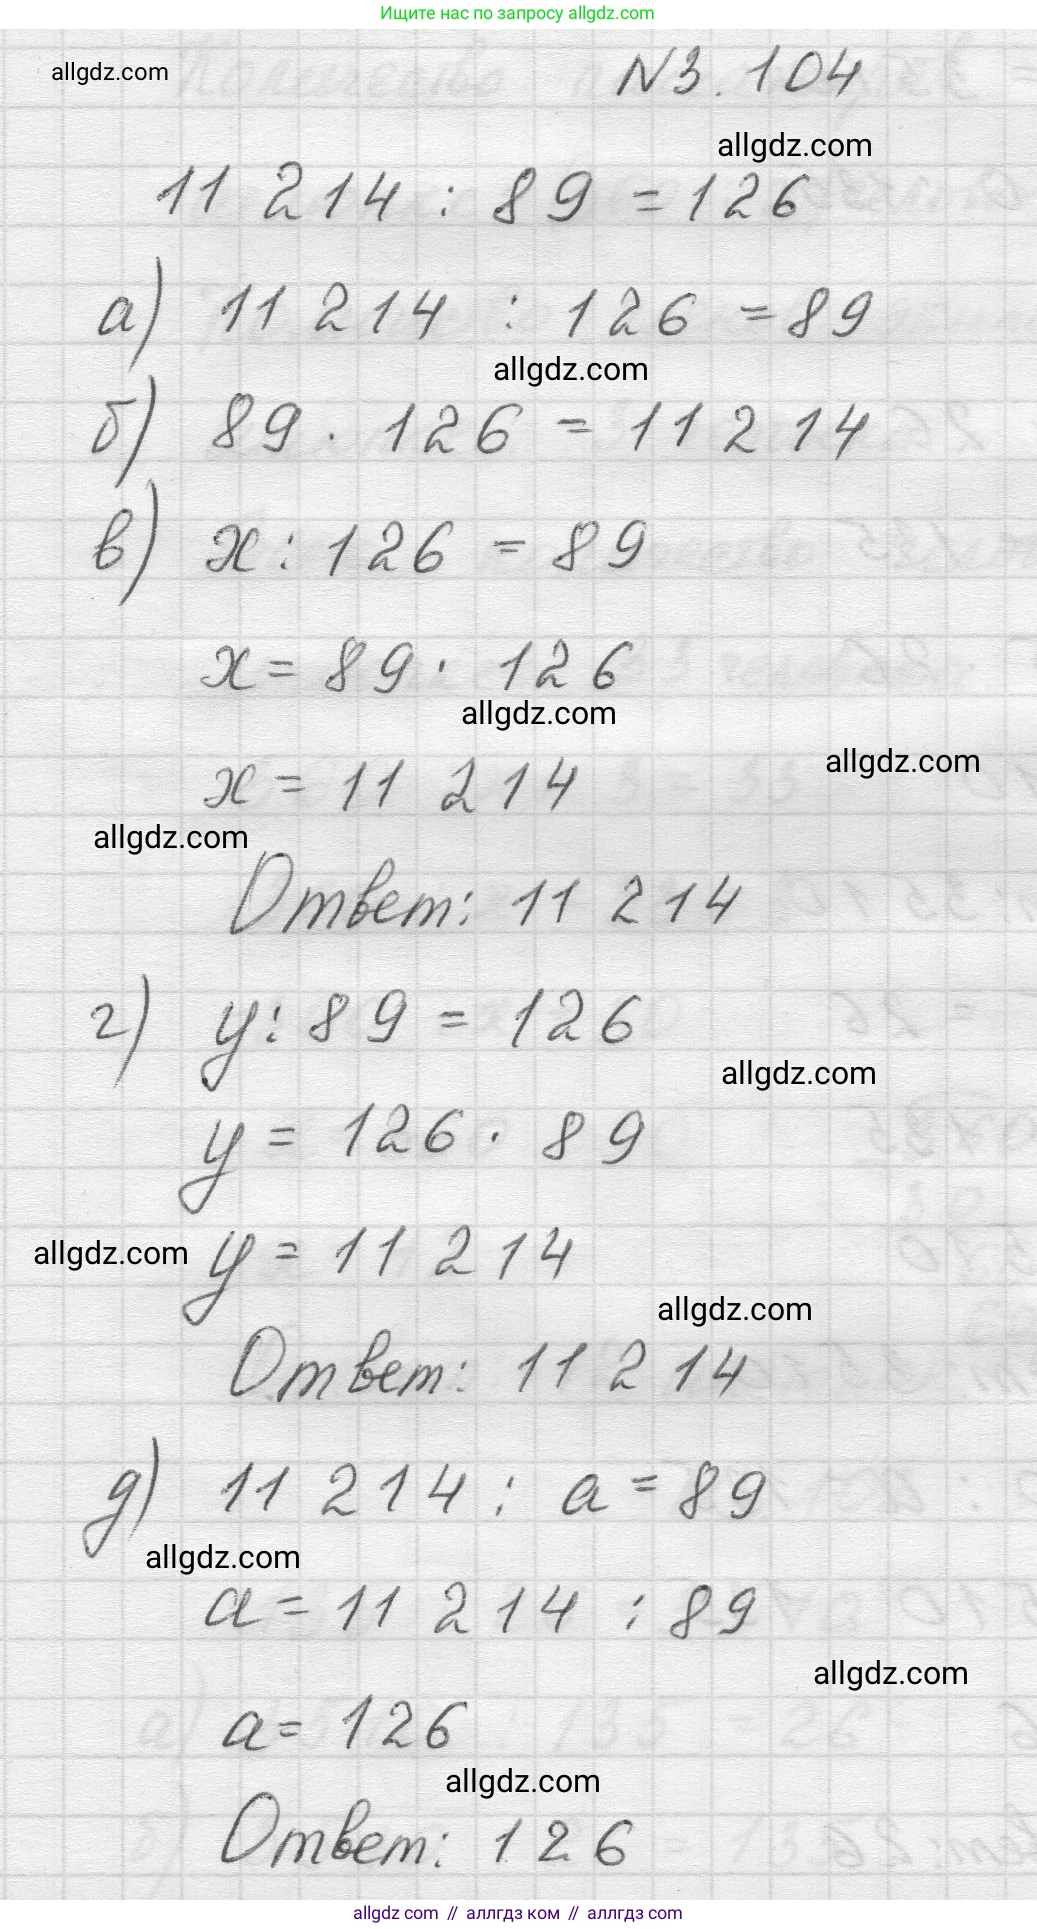 Ищите нас по запросу allgdz.com
allgdz.com
N3.104
allgdz.com
11 214 : 89 = 126
а) 11 214 : 126 = 89
allgdz.com
б) 89 · 126 = 11 214
в) x : 126 = 89
x = 89 · 126
allgdz.com
allgdz.com
x = 11 214
allgdz.com
Ответ: 11 214
г) y : 89 = 126
allgdz.com
y = 126 · 89
allgdz.com
y = 11 214
allgdz.com
Ответ: 11 214
д) 11 214 : a = 89
allgdz.com
a = 11 214 : 89
allgdz.com
a = 126
allgdz.com
Ответ: 126
allgdz.com // аллгдз ком // аллгдз com